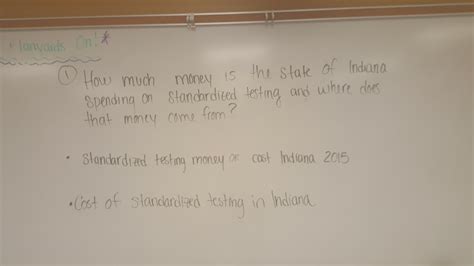 Lanyards On! *
① How much money is the state of Indiana
spending on standardized testing and where does
that money come from?
• Standardized testing money or cost Indiana 2015
• Cost of standardized testing in Indiana